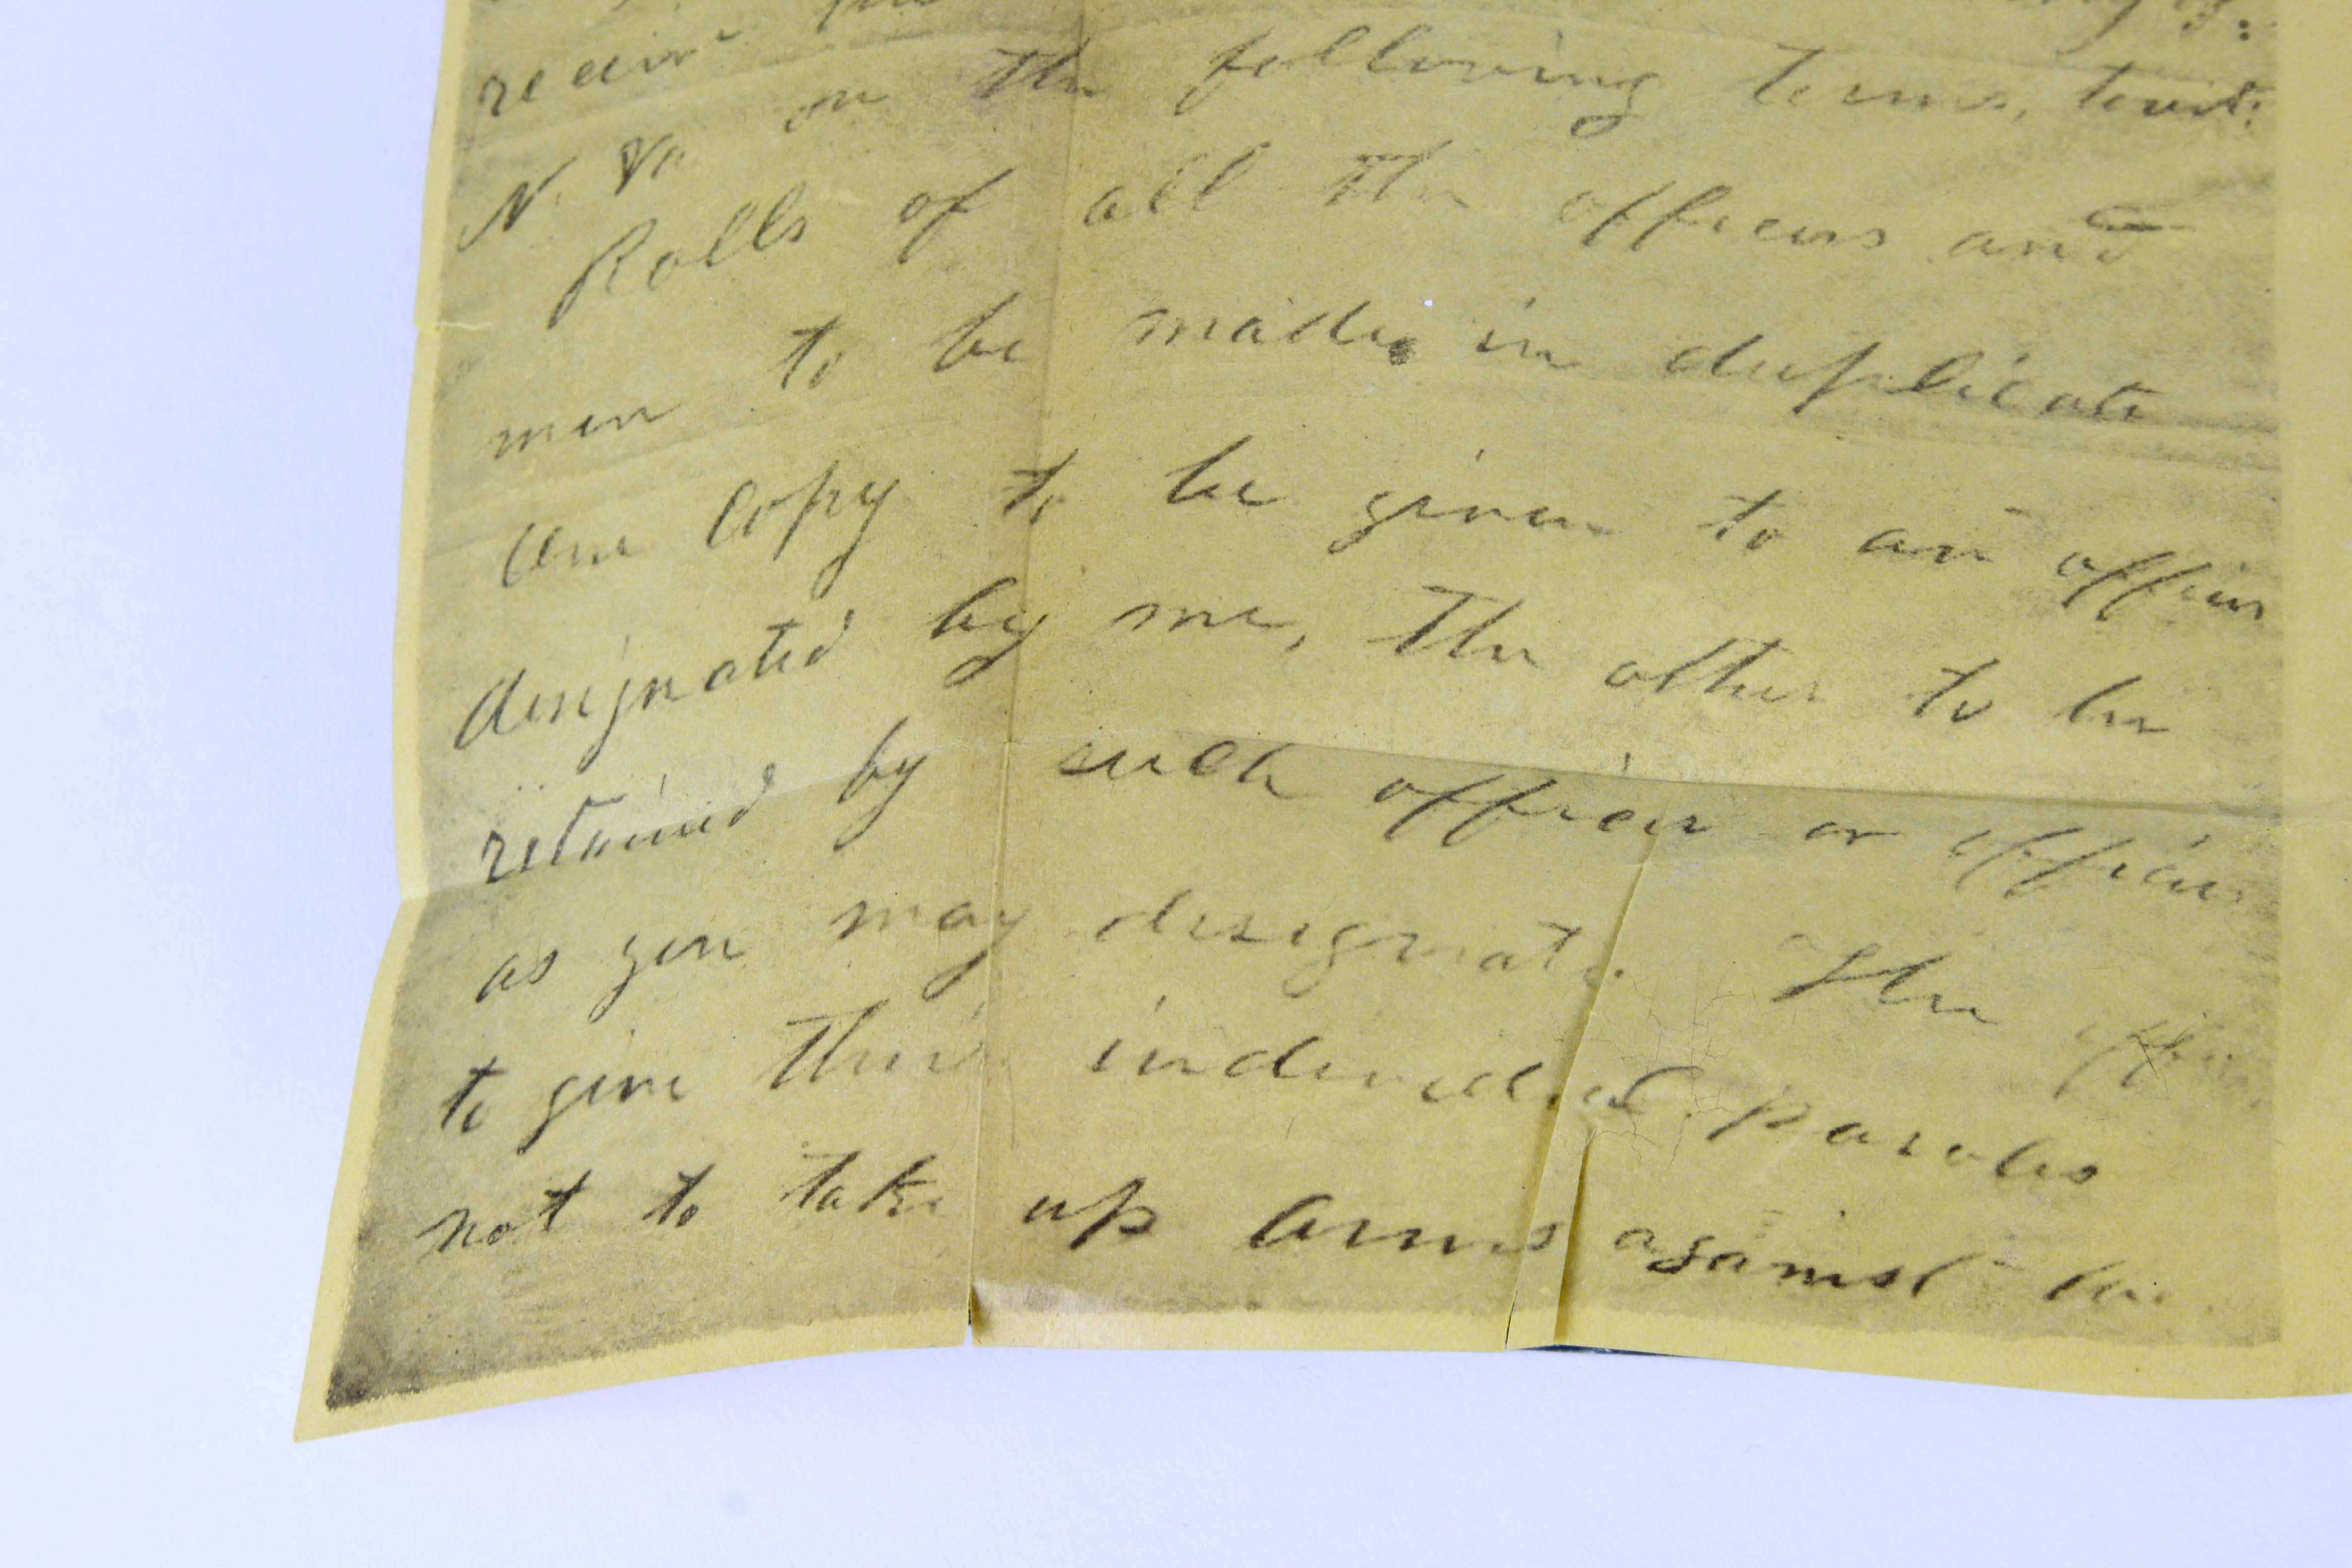 receive the
N. Va on the following terms, towit:
Rolls of all the officers and
men to be made in duplicate
One copy to be given to an officer
designated by me, the other to be
retained by such officer or officers
as you may designate. The officers
to give their individual paroles
not to take up arms against the